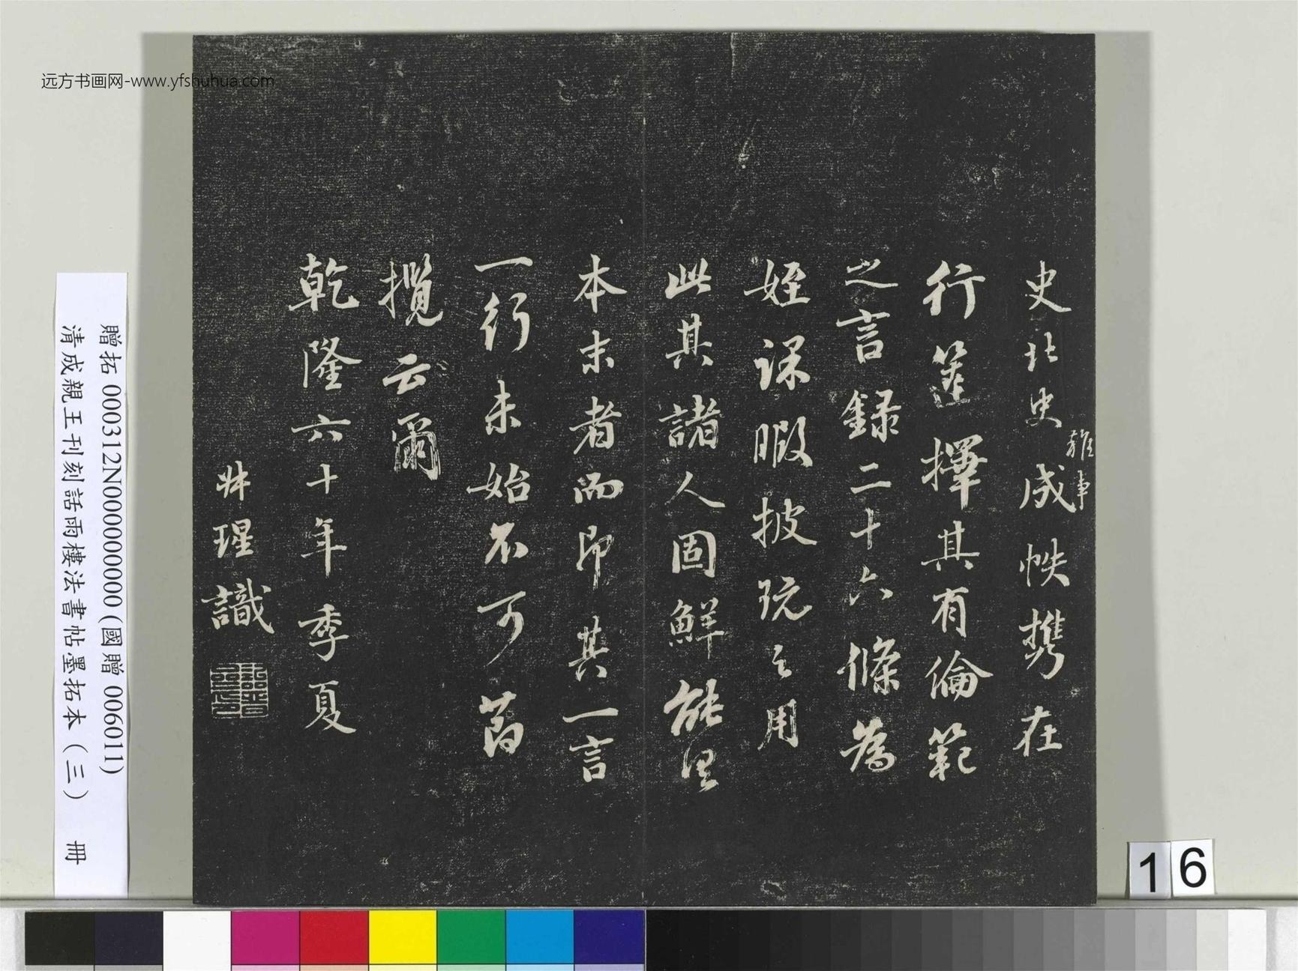 远方书画网-www.yfshuhua.com
史北史雜事成帙携在
行篋擇其有倫範
之言録二十六條為
姪課暇披玩之用
此其諸人固鮮能罄
本末者而即其一言
一行未始不可
攬云爾
乾隆六十年季夏
識
贈拓 000312N000000000 (國贈 006011)
清成親王刊刻話雨樓法書帖墨拓本（三） 冊
16